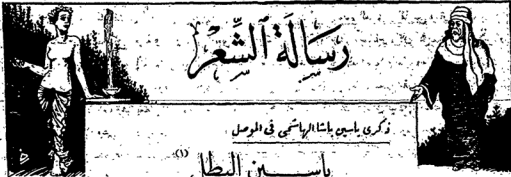 رسالة الشعر
ذكرى ياسين باشا الهاشمي في الموصل
ياسين البطل (١)